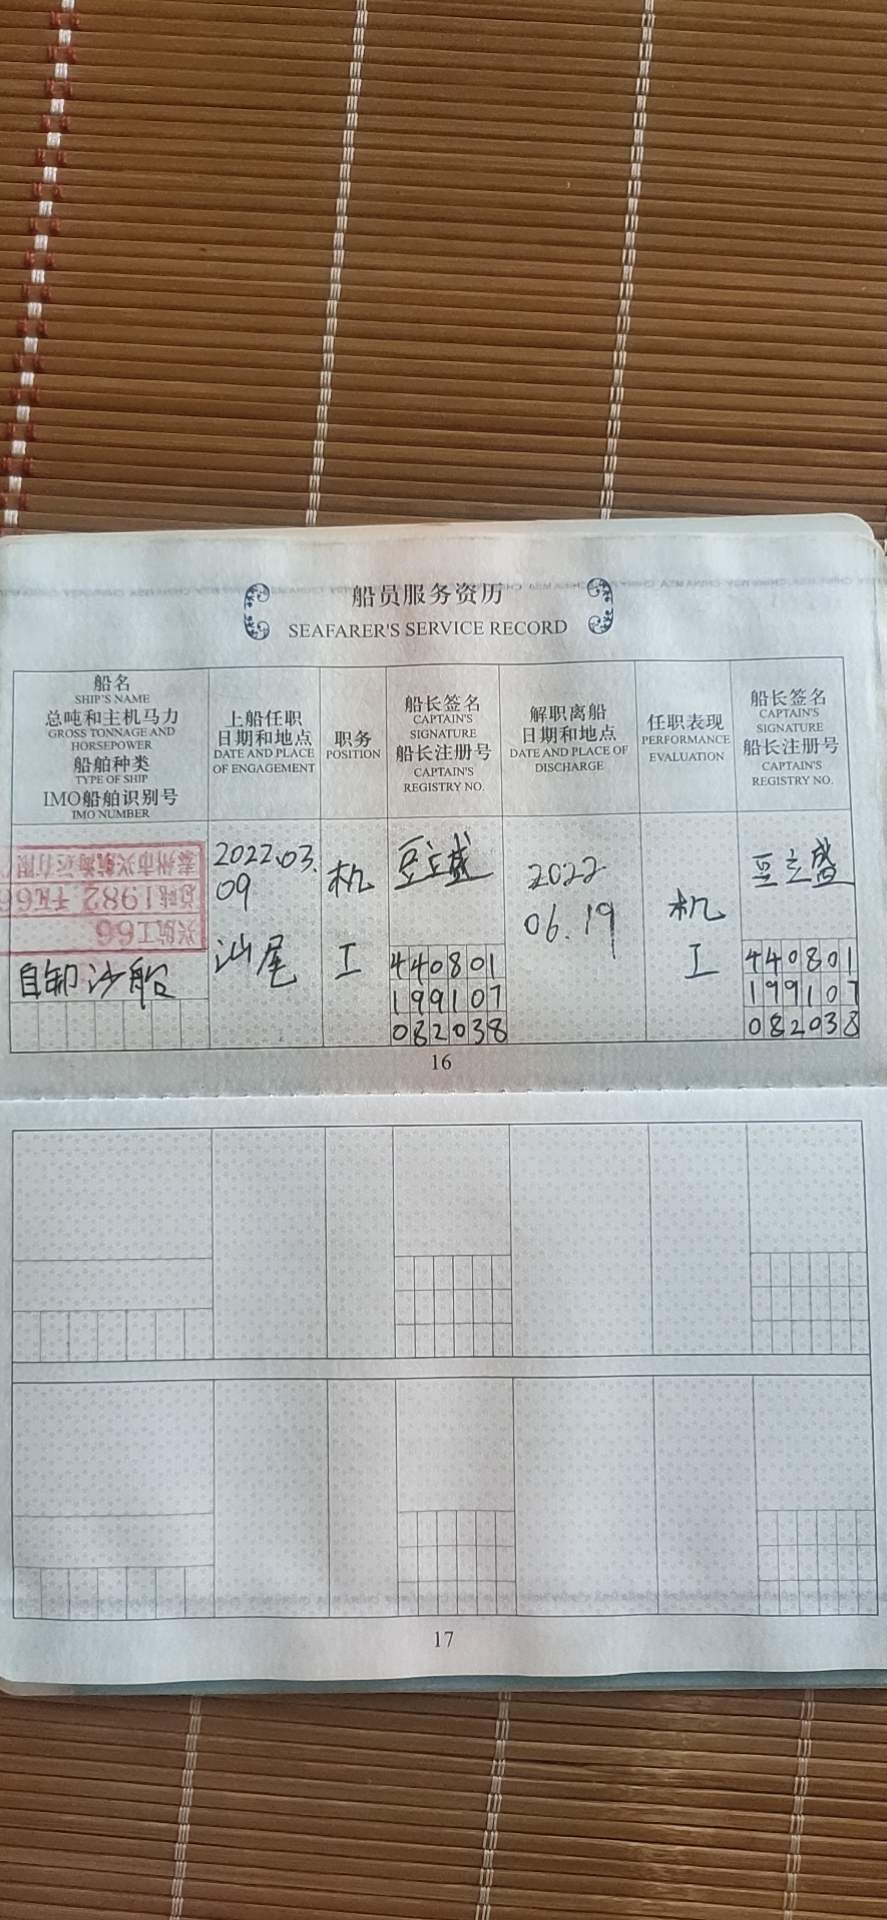 船员服务资历
SEAFARER'S SERVICE RECORD
船名
SHIP'S NAME
总吨和主机马力
GROSS TONNAGE AND
HORSEPOWER
船舶种类
TYPE OF SHIP
IMO船舶识别号
IMO NUMBER
上船任职
日期和地点
DATE AND PLACE
OF ENGAGEMENT
职务
POSITION
船长签名
CAPTAIN'S
SIGNATURE
船长注册号
CAPTAIN'S
REGISTRY NO.
解职离船
日期和地点
DATE AND PLACE OF
DISCHARGE
任职表现
PERFORMANCE
EVALUATION
船长签名
CAPTAIN'S
SIGNATURE
船长注册号
CAPTAIN'S
REGISTRY NO.
兴航工66
总吨1982 千瓦66
泰州市兴航海运有限
自卸沙船
2022.03.
09
汕尾
机
工
豆立盛
440801
199107
082038
2022
06.19
机
工
豆立盛
440801
199107
082038
16
17